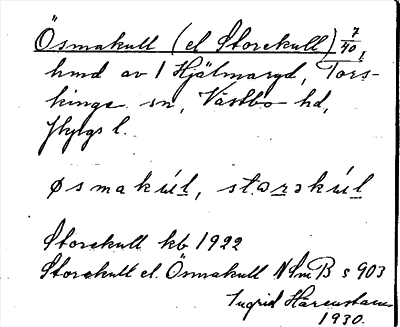 Ösmakull (el Storekull) 7/40,
hmd av 1 Hjälmaryd, Tors-
kinge sn, Västbo hd,
Jkpgs l.
øsmakúl, storəkúl
Storekull kb 1922
Storekull el. Ösmakull N Sm B s 903
Ingrid Härenstam
1930.